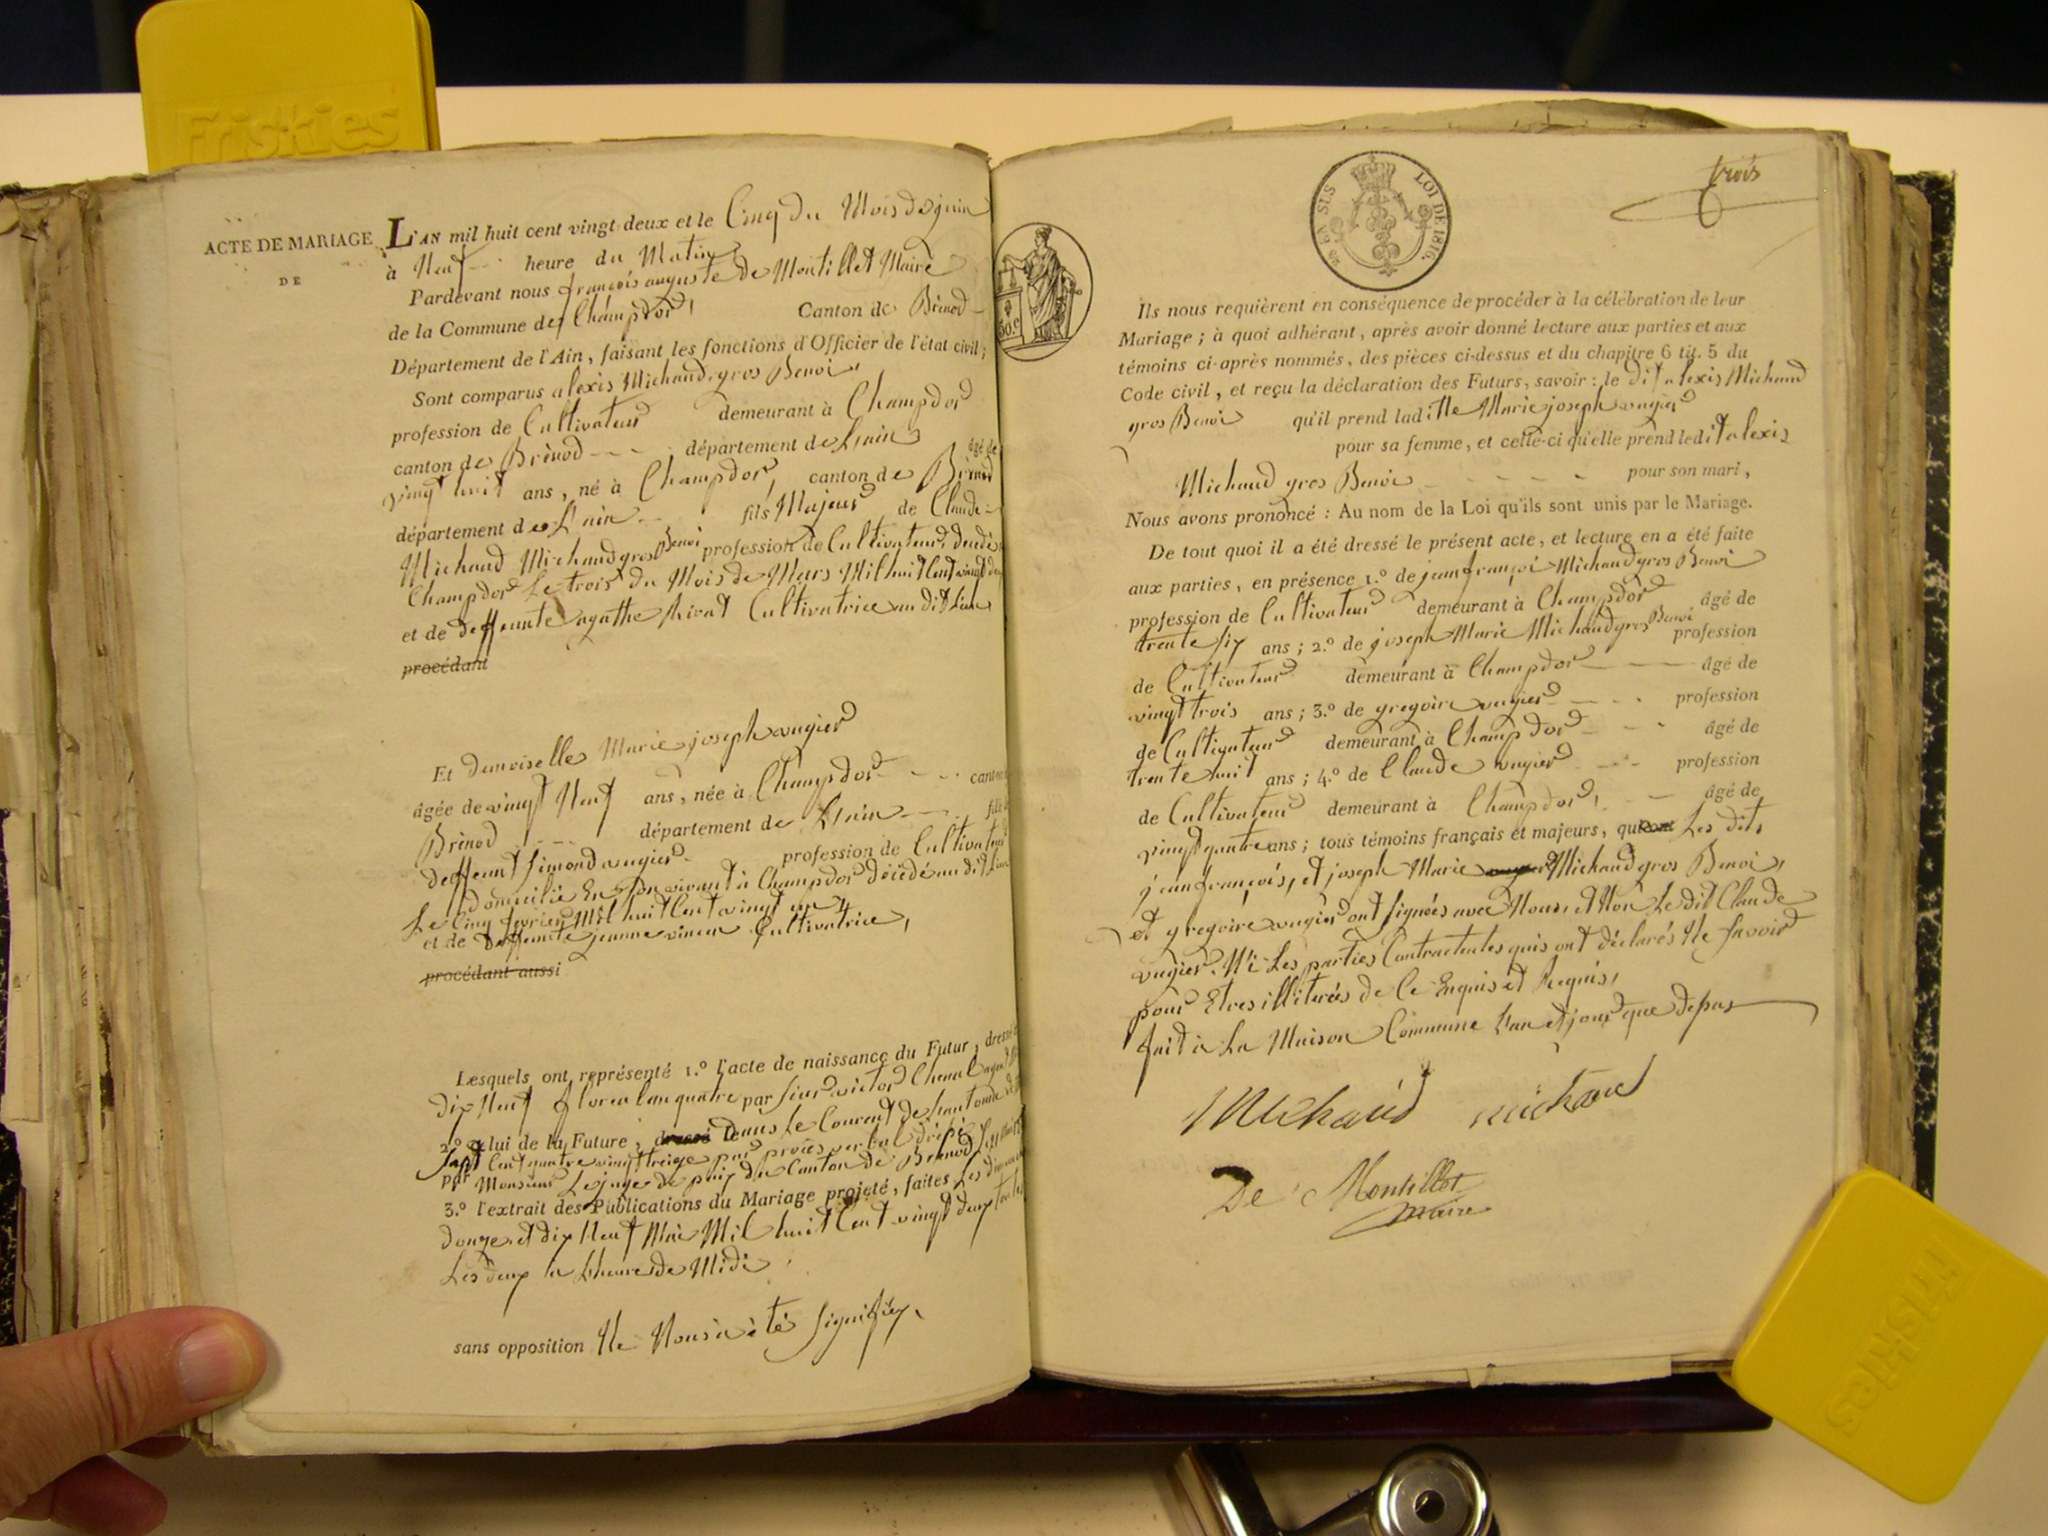 Friskies
ACTE DE MARIAGE
DE
L'AN mil huit cent vingt-deux et le Cinq du Mois de juin
à Neuf heure du Matin
Pardevant nous françois auguste de Montillet Maire
de la Commune de Champdor, Canton de Brénod
Département de l'Ain, faisant les fonctions d'Officier de l'état civil;
Sont comparus alexis Michaud gros Benoi,
profession de Cultivateur demeurant à Champdor
canton de Brénod département de L'ain âgé de
vingt huit ans, né à Champdor, canton de Brénod
département de L'ain fils Majeur de Claude
Michaud Michaud gros Benoi profession de Cultivateur, décédé
Champdor Le trois du Mois de Mars Mil huit Cent vingt
et de deffeunte agathe Cultivatrice au dit Lieu
procédant
Et demoiselle Marie joseph augier
âgée de vingt Neuf ans, née à Champdor canton
Brénod département de L'ain
deffeunt Simond augier profession de Cultivateur
domicilié En Son vivant à Champdor décédé au dit Lieu
Le Cinq fevrier Mil huit Cent vingt un
et de Deffeunte jeanne Cultivatrice,
procédant aussi
Lesquels ont représenté 1.º l'acte de naissance du Futur, dressé
dix Neuf floreal an quatre par Sieur victor
2.º celui de la Future, dressé dans Le Courent de
Sept Cent quatre vingt treize par procès verbal
par Monsieur Le juge de paix du Canton de Brénod
3.º l'extrait des Publications du Mariage projeté, faites Les dimanches
douze et dix Neuf Mai Mil huit Cent vingt deux toutes
Les deux a L'heure de Midi
sans opposition Ne Nous a été Signifiéz
20 EA SUS
LOI DE 1816.
trois
50.c
Ils nous requièrent en conséquence de procéder à la célébration de leur
Mariage; à quoi adhérant, après avoir donné lecture aux parties et aux
témoins ci-après nommés, des pièces ci-dessus et du chapitre 6 tit. 5 du
Code civil, et reçu la déclaration des Futurs, savoir: le dit alexis Michaud
gros Benoi qu'il prend ladite Marie joseph augier
pour sa femme, et celle-ci qu'elle prend ledit alexis
Michaud gros Benoi pour son mari,
Nous avons prononcé: Au nom de la Loi qu'ils sont unis par le Mariage.
De tout quoi il a été dressé le présent acte, et lecture en a été faite
aux parties, en présence 1.º de jean françoi Michaud gros Benoi
profession de Cultivateur demeurant à Champdor âgé de
trente six ans; 2.º de joseph Marie Michaud gros Benoi profession
de Cultivateur demeurant à Champdor âgé de
vingt trois ans; 3.º de gregoire augier profession
de Cultivateur demeurant à Champdor âgé de
trente huit ans; 4.º de Claude augier profession
de Cultivateur demeurant à Champdor, âgé de
vingt quatre ans; tous témoins français et majeurs, qui ont Les dits
jean françois, et joseph Marie Michaud gros Benoi,
et gregoire augier ont Signées avec Nous, et Non Le dit Claude
augier. Ni Les parties Contractentes quis ont déclarés Ne Savoir
pour Etres illiterés de Ce Enquis et Requis,
fait a La Maison Commune L'an et jour que depas
Michaud michaud
De Montillet
maire
Friskies